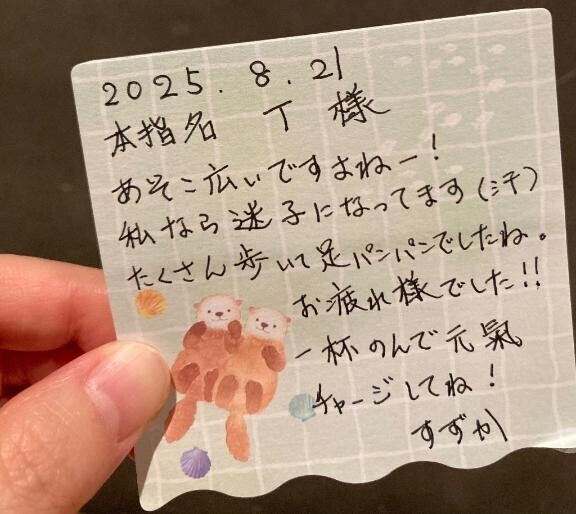 2025.8.21
本指名 T 様
あそこ広いですよねー!
私なら迷子になってます(汗)
たくさん歩いて足パンパンでしたね。
お疲れ様でした!!
一杯のんで元氣
チャージしてね!
すずか